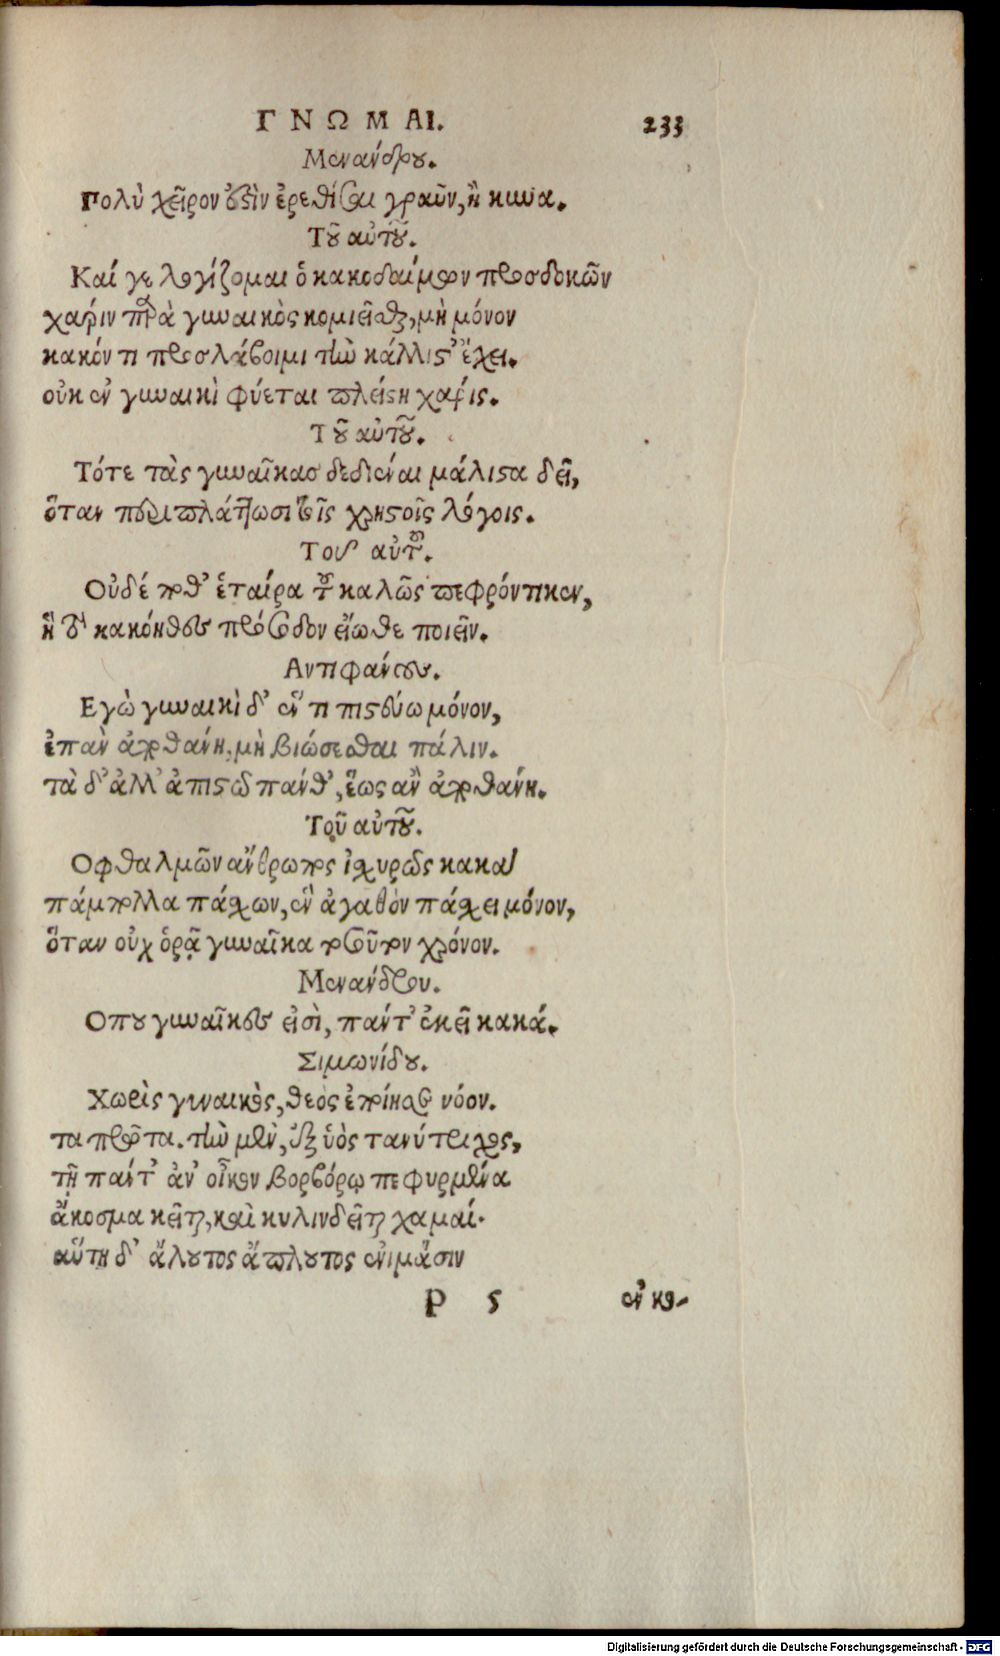 ΓΝΩΜΑΙ. 233
Μενάνδρου.
Πολὺ χεῖρον ἐστὶν ἐρεθίσαι γραῦν, ἢ κύνα.
Τοῦ αὐτοῦ.
Καί γε λογίζομαι ὁ κακοδαίμων προσδοκῶν
χάριν παρὰ γυναικὸς κομιεῖσθαι, μὴ μόνον
κακόν τι προσλάβοιμι τὴν κάλλιστ' ἔχει.
οὐκ ἐν γυναικὶ φύεται πλείστη χάρις.
Τοῦ αὐτοῦ.
Τότε τὰς γυναῖκας δεδιέναι μάλιστα δεῖ,
ὅταν περιπλάττωσι τοῖς χρηστοῖς λόγοις.
Τοῦ αὐτοῦ.
Οὐδέ ποθ' ἑταίρα τοῦ καλῶς πεφρόντικεν,
ἣ τὸ κακόηθες πρόσοδον εἴωθε ποιεῖν.
Αντιφάνους.
Εγὼ γυναικὶ δ' ἕν τι πιστεύω μόνον,
ἐπὰν ἀποθάνη, μὴ βιώσεσθαι πάλιν.
τὰ δ' ἄλλ' ἀπιστῶ πάνθ', ἕως ἂν ἀποθάνη.
Τοῦ αὐτοῦ.
Οφθαλμῶν ἄνθρωπος ἰσχυρῶς κακὰ
πάμπολλα πάσχων, ἓν ἀγαθὸν πάσχει μόνον,
ὅταν οὐχ ὁρᾷ γυναῖκα τοσοῦτον χρόνον.
Μενάνδρου.
Οπου γυναῖκες εἰσὶ, πάντ' ἐκεῖ κακά.
Σιμωνίδου.
Χωρὶς γυναικὸς, θεὸς ἐποίησεν νόον.
τα πρῶτα. τὴν μὲν, ἐξ ὑὸς τανύτριχος,
τῇ πάντ' ἀν' οἶκον βορβόρῳ πεφυρμένα
ἄκοσμα κεῖται, καὶ κυλινδεῖται χαμαί.
αὕτη δ' ἄλουτος ἄπλουτος ἐνιμάσιν
P 5 ἐν κο-
Digitalisierung gefördert durch die Deutsche Forschungsgemeinschaft - DFG